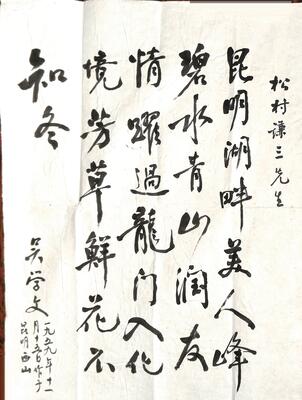 松村謙三先生
昆明湖畔美人峰
碧水青山潤友
情躍過龍门入化
境芳草鮮花不
知冬
吴学文
一九五九年十一
月十五日作于
昆明西山